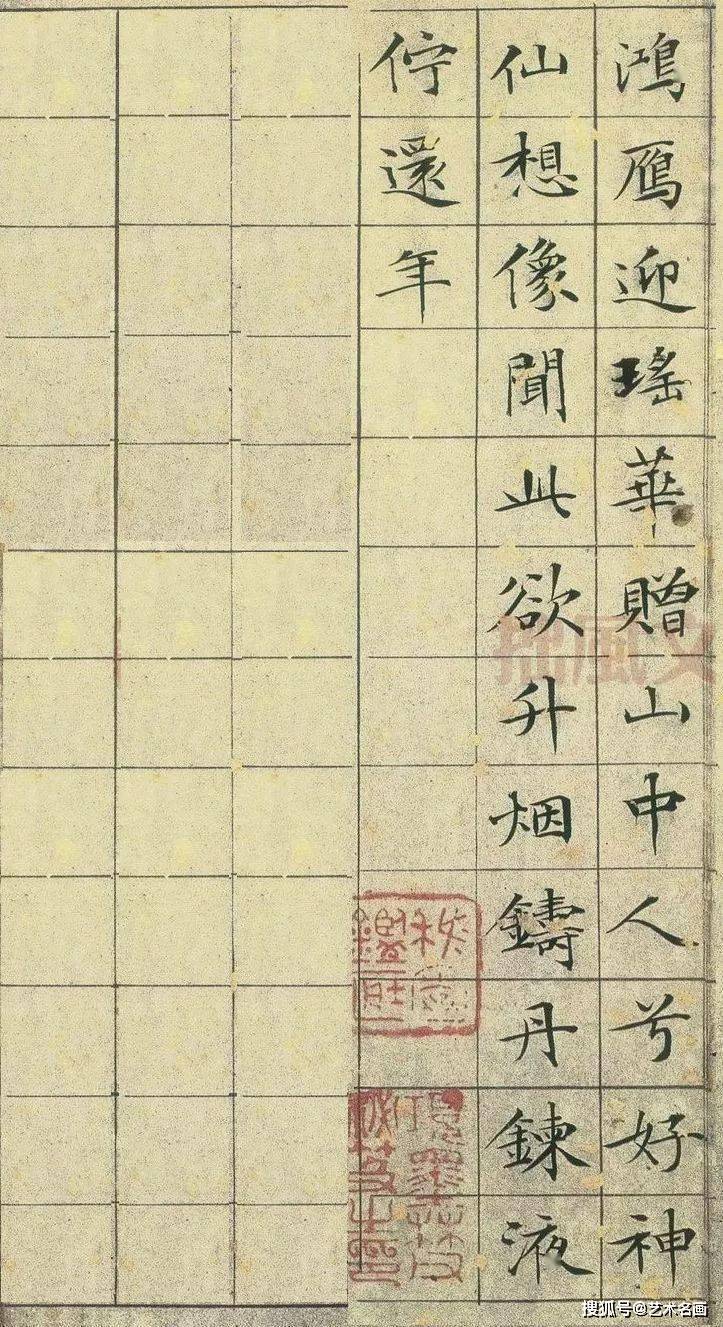 鴻鴈迎瑤華贈山中人兮好神
仙想像聞此欲升烟鑄丹鍊液
佇還年
搜狐号@艺术名画